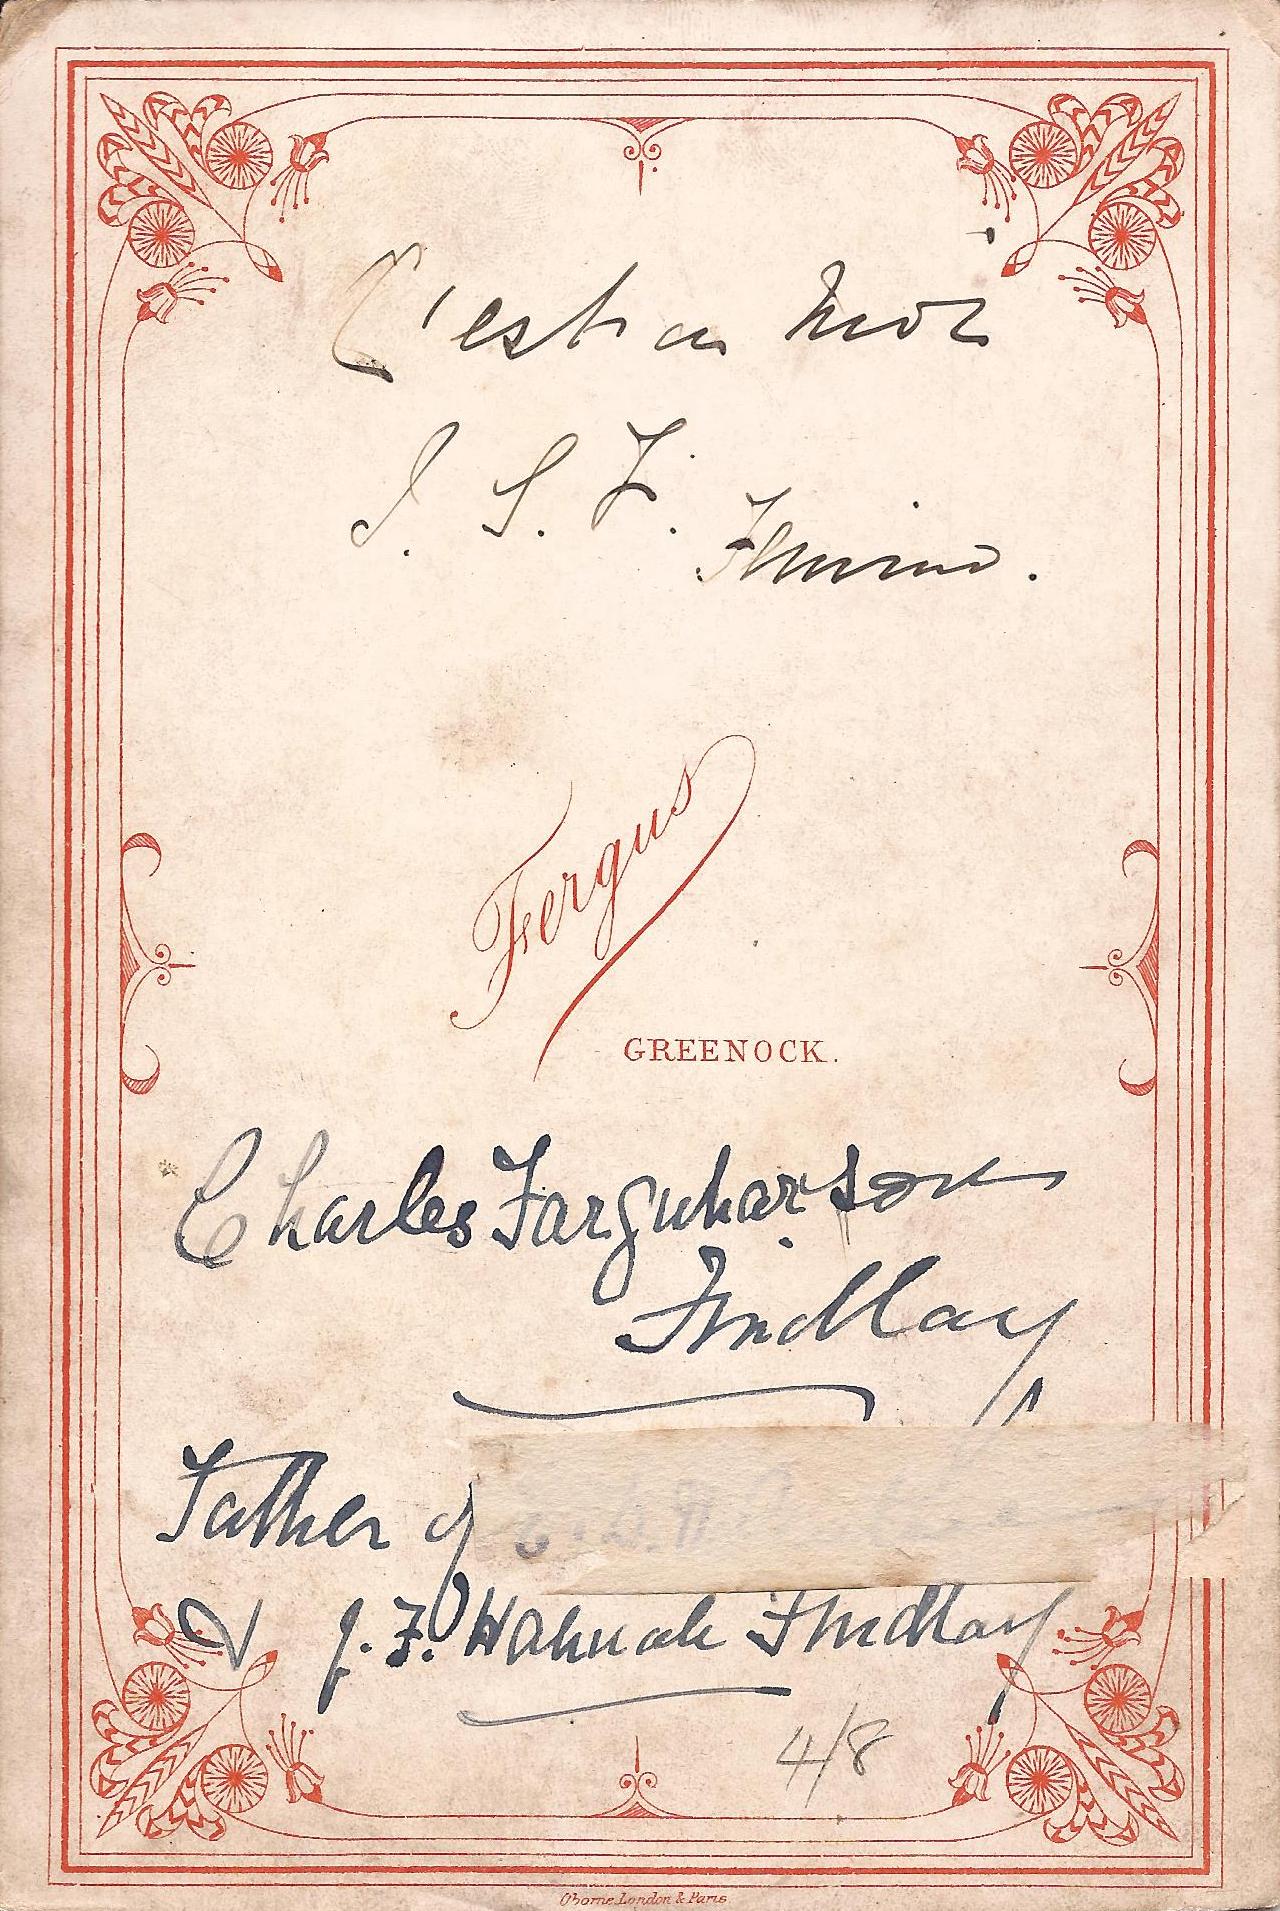 C'est a moi
J. S. F.
Fergus
GREENOCK.
Charles Farquharson
Findlay
Father of
& J. F. Hannah Findlay
4/8
Oborne London & Paris